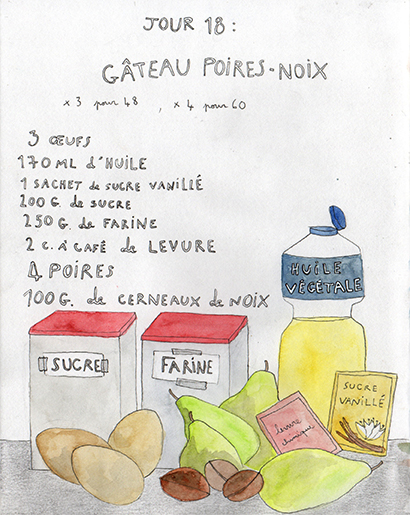 JOUR 18 :
GÂTEAU POIRES-NOIX
x 3 pour 48 , x 4 pour 60
3 ŒUFS
170 ML d'HUILE
1 SACHET de SUCRE VANILLÉ
200 G. de SUCRE
250 G. de FARINE
2 C. À CAFÉ de LEVURE
4 POIRES
100 G. de CERNEAUX de NOIX
HUILE
VÉGÉTALE
SUCRE
FARINE
SUCRE
VANILLÉ
levure
chimique